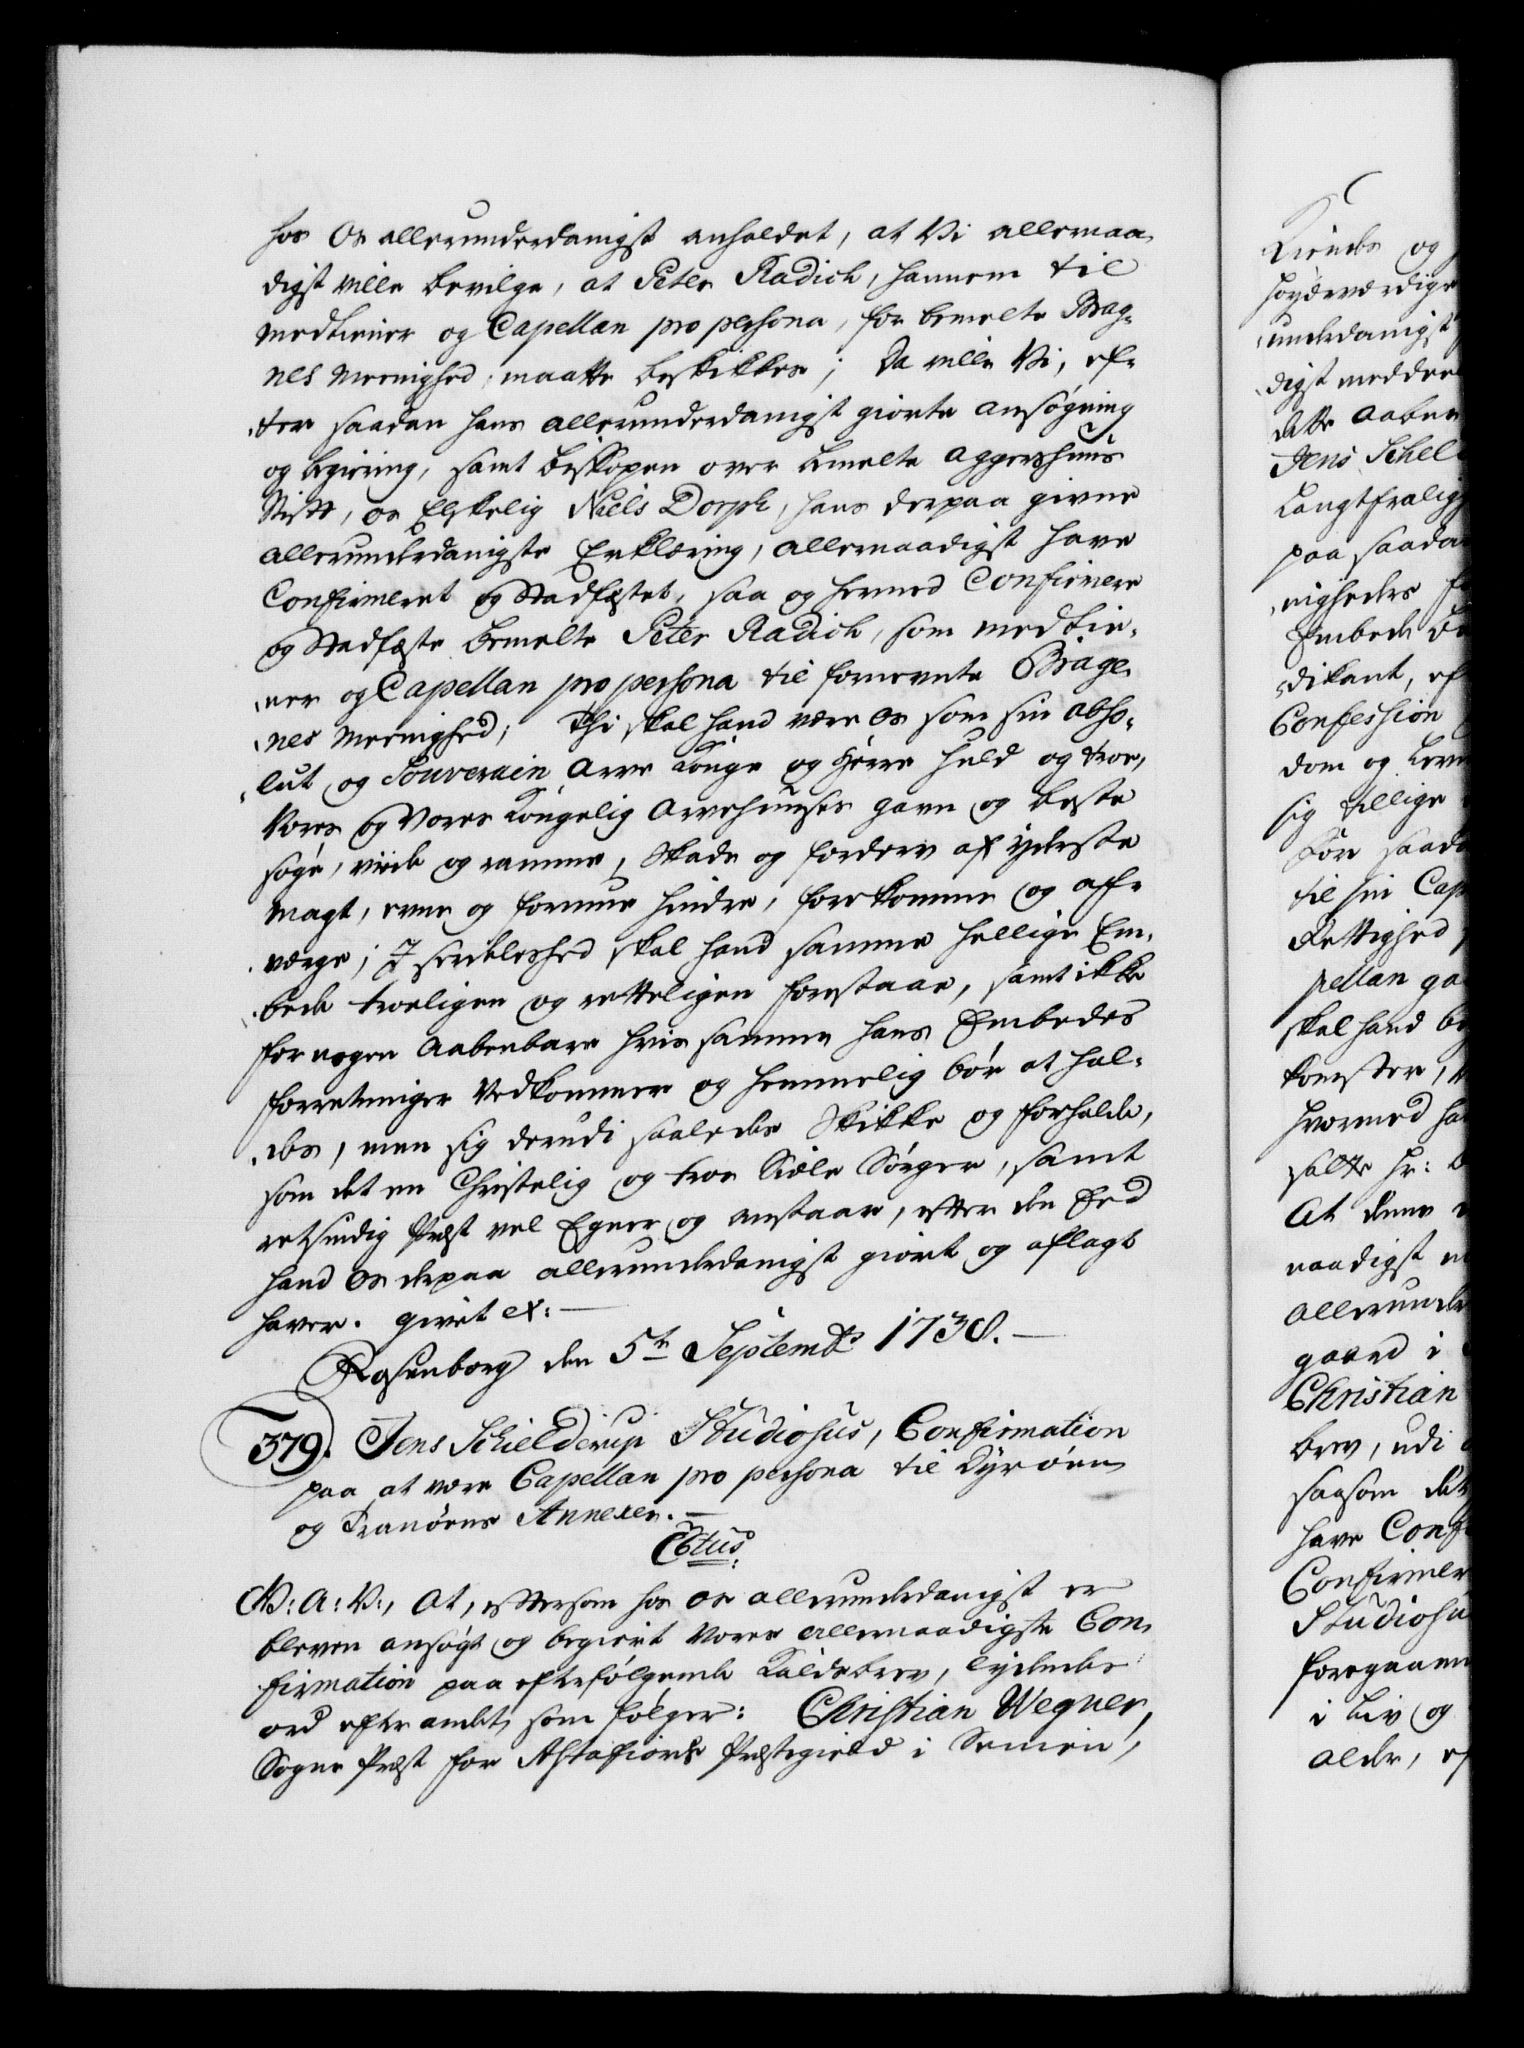 hos Os allerunderdanigst anholdet, at Vi allernaa-
digst ville bevilge, at Peter Radich, hannem til
Medtiener og Capellan pro persona, for bemelte Brag-
nes Meenighed, maatte beskikkes; Da ville Vi, ef-
ter saadan hans allerunderdanigst giorte ansøgning
og begiering, samt Biskopen over bemelte Aggershuus
Stift, os Elskelig Niels Dorph, hans derpaa givne
allerunderdanigste Erklæring, allernaadigst have
Confirmeret og Stadfæstet, saa og hermed Confirmere
og Stadfæste bemelte Peter Radich, som Medtie-
ner og Capellan pro persona til fornevnte Brage-
nes Meenighed; Thi skal hand være Os som sin abso-
lut og Souverain Arve Konge og Herre huld og troe,
Vores og Vores Kongelig Arvehuuses gavn og beste
søge, viide og ramme, Skade og forderv af yderste
Magt, evne og formue hindre, forekomme og af-
værge; I serdeleshed skal hand samme hellige Em-
bede troeligen og retteligen forestaae, samt ikke
for nogen aabenbare hvis samme hans Embedes
forretninger Vedkommer og hemmelig bør at hol-
des, men sig derudi saaledes Skikke og forholde,
som det en Christelig og troe Siæle Sørger, samt
retsindig Præst vel Egner og anstaar, efter den Eed
hand Os derpaa allerunderdanigst giort og aflagt
haver. Givet ex: —
Rosenborg den 5te Septembr 1738. —
379. Jens Schielderup Studiosus, Confirmation
paa at være Capellan pro persona til Dyrøens
og Tranøens Annexer. —
C6tus.
V: A: V:, At, eftersom hos os allerunderdanigst er
bleven ansøgt og begiert Vores allernaadigste Con-
firmation paa efterfølgende Kaldsbrev, lydendes
ord efter andet, som følger: Christian Wegner,
Sogne Præst for Astafiords Præstegield i Senien,
Kiendes og
høyærværdige
underdanigst
digst meddeel
dette aabne
Jens Schel
Langtfralig
paa saada
nigheders
Embede be
dikant, ef
Confession
dom og lev
sig tillige
før saad
til sin Cap
Rettighed
pellan ga
skal hand be
komster,
hvormed ha
satte hr:
At denne
naadigst
allerunde
gaard i
Christian
brev, udi
saasom det
have Conf
Confirmer
Studiosu
foregaaen
i Liv og
alder, ef